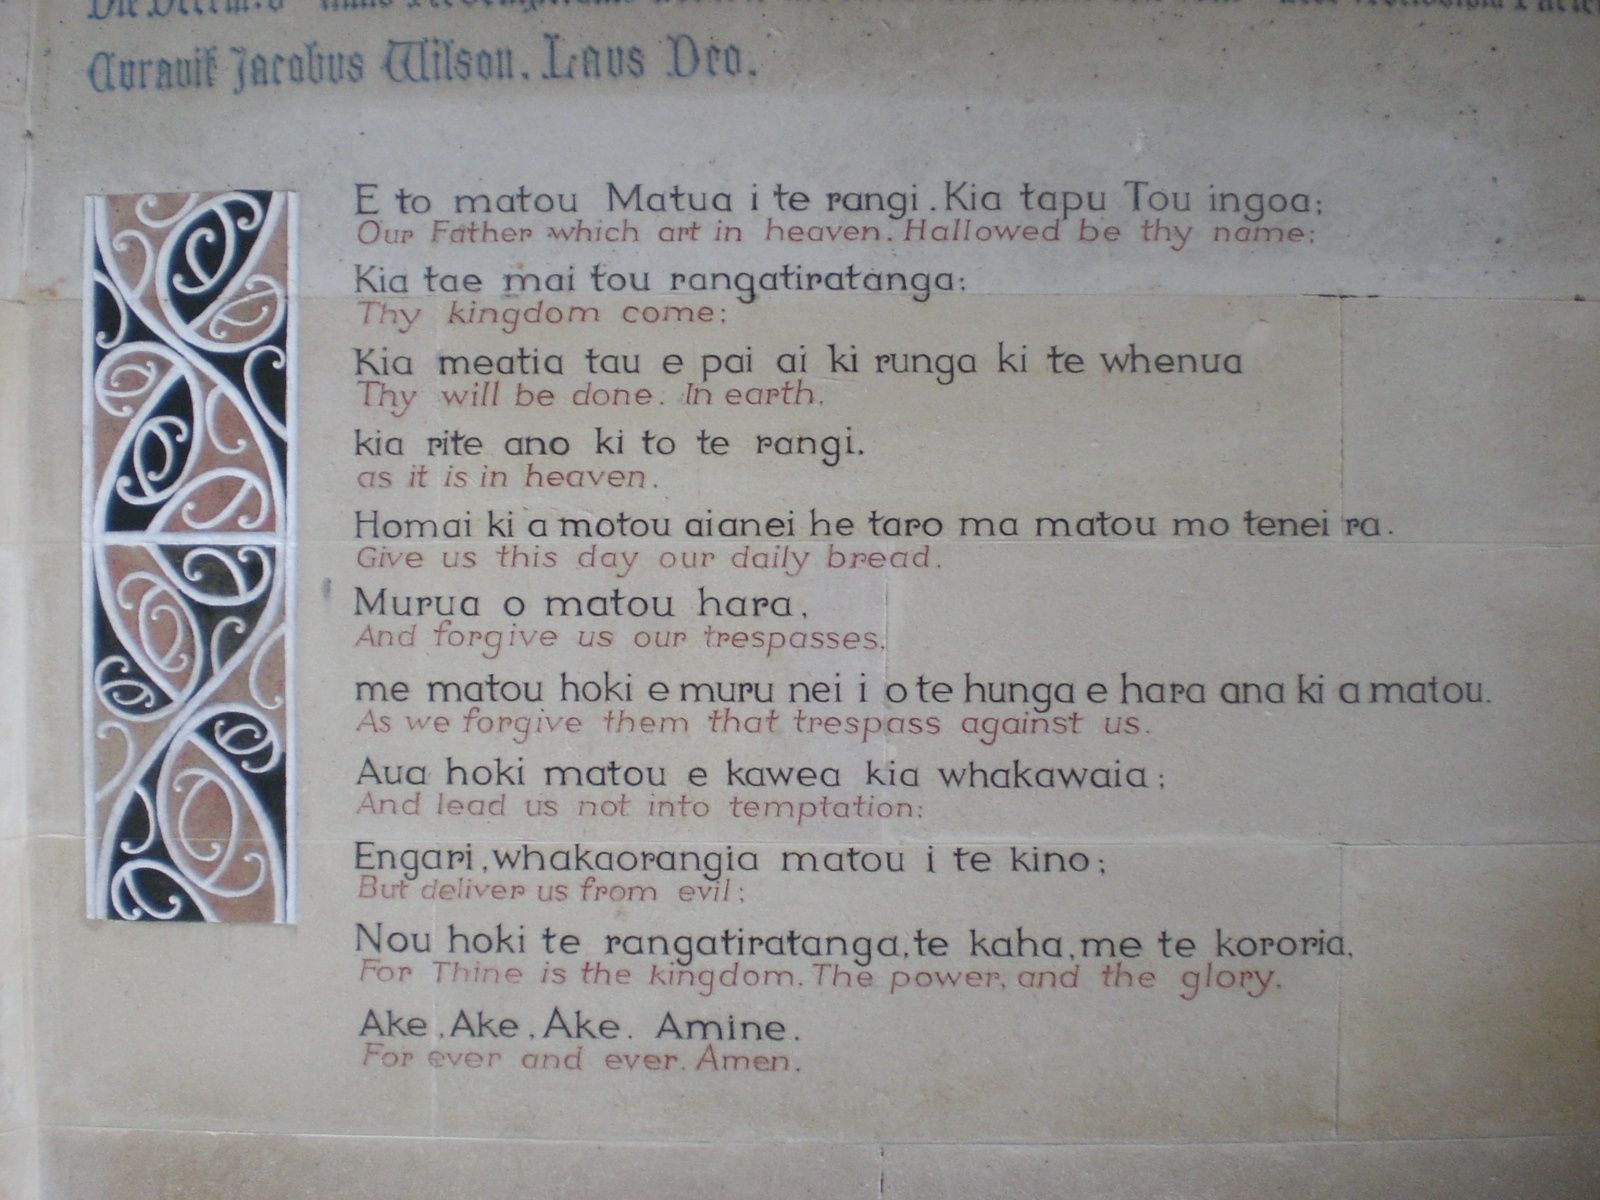 Curavit Jacobus Wilson. Laus Deo.
E to matou Matua i te rangi. Kia tapu Tou ingoa;
Our Father which art in heaven. Hallowed be thy name;
Kia tae mai tou rangatiratanga;
Thy kingdom come;
Kia meatia tau e pai ai ki runga ki te whenua
Thy will be done. In earth,
kia rite ano ki to te rangi.
as it is in heaven.
Homai ki a motou aianei he taro ma matou mo tenei ra.
Give us this day our daily bread.
Murua o matou hara,
And forgive us our trespasses,
me matou hoki e muru nei i o te hunga e hara ana ki a matou.
As we forgive them that trespass against us.
Aua hoki matou e kawea kia whakawaia;
And lead us not into temptation;
Engari, whakaorangia matou i te kino;
But deliver us from evil;
Nou hoki te rangatiratanga, te kaha, me te kororia,
For Thine is the kingdom. The power, and the glory.
Ake, Ake, Ake. Amine.
For ever and ever. Amen.